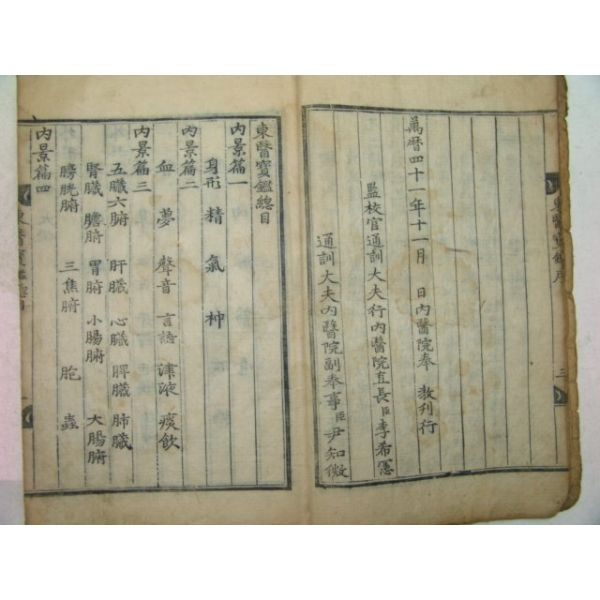 萬曆四十一年十一月　日內醫院奉　敎刊行
監校官通訓大夫行內醫院直長臣李希憲
通訓大夫內醫院副奉事臣尹知微
東醫寶鑑序
三
東醫寶鑑總目
內景篇一
身形　精　氣　神
內景篇二
血　夢　聲音　言語　津液　痰飮
內景篇三
五臟六腑　肝臟　心臟　脾臟　肺臟
腎臟　膽腑　胃腑　小腸腑　大腸腑
膀胱腑　三焦腑　胞　蟲
內景篇四